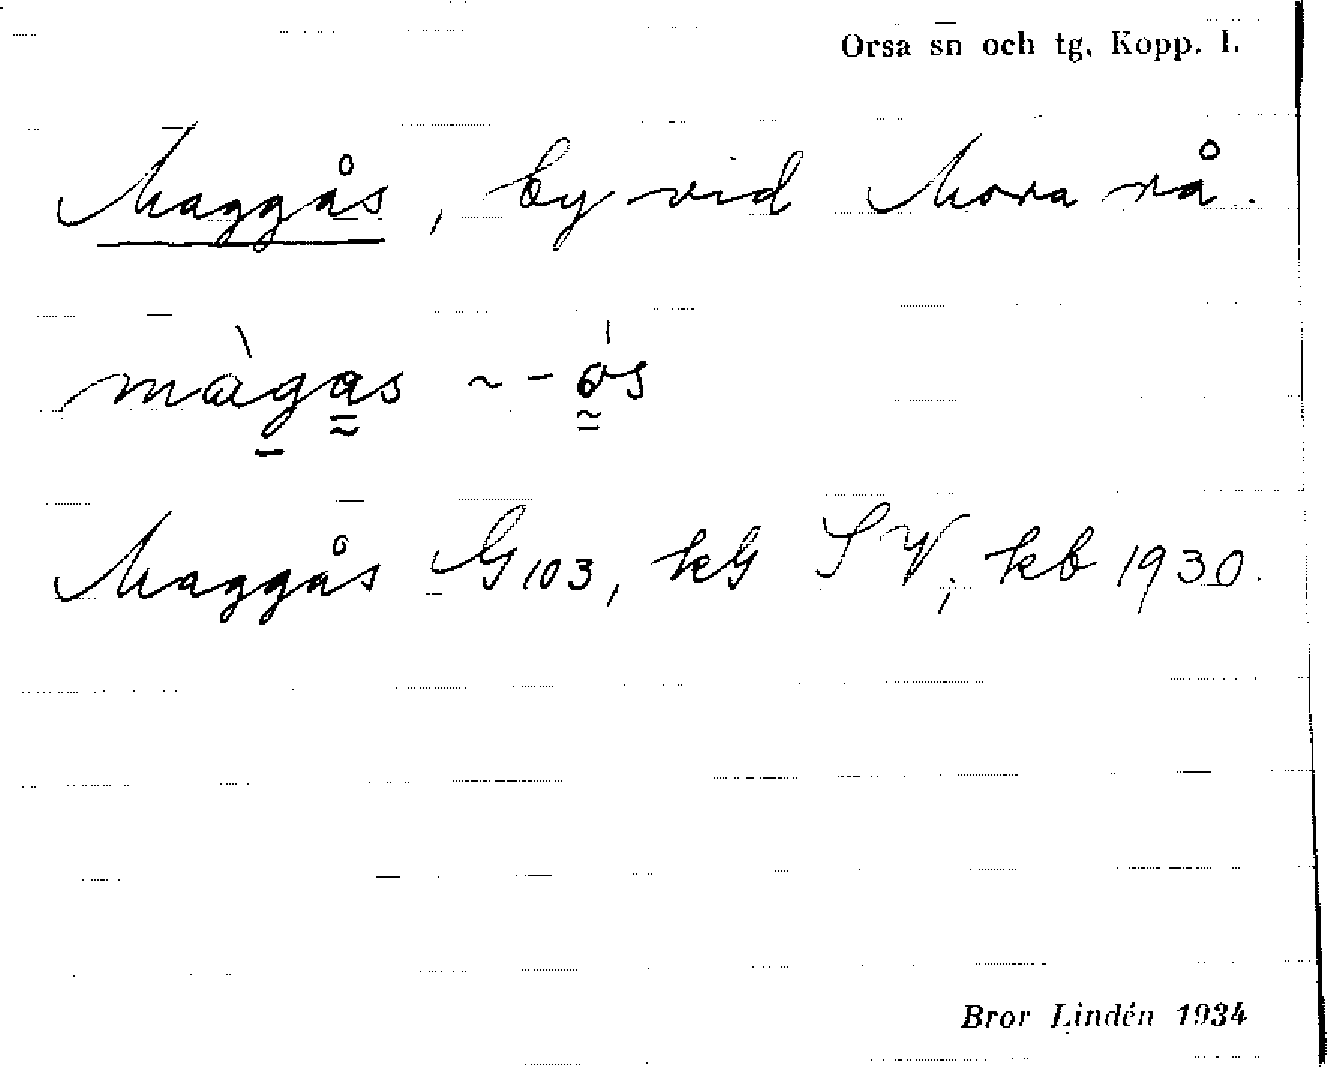 Orsa sn och tg. Kopp. l.
Maggås, by vid Mora rå.
màgas ~ - ós
Maggås G 103, kG SV, kb 1930.
Bror Lindén 1934